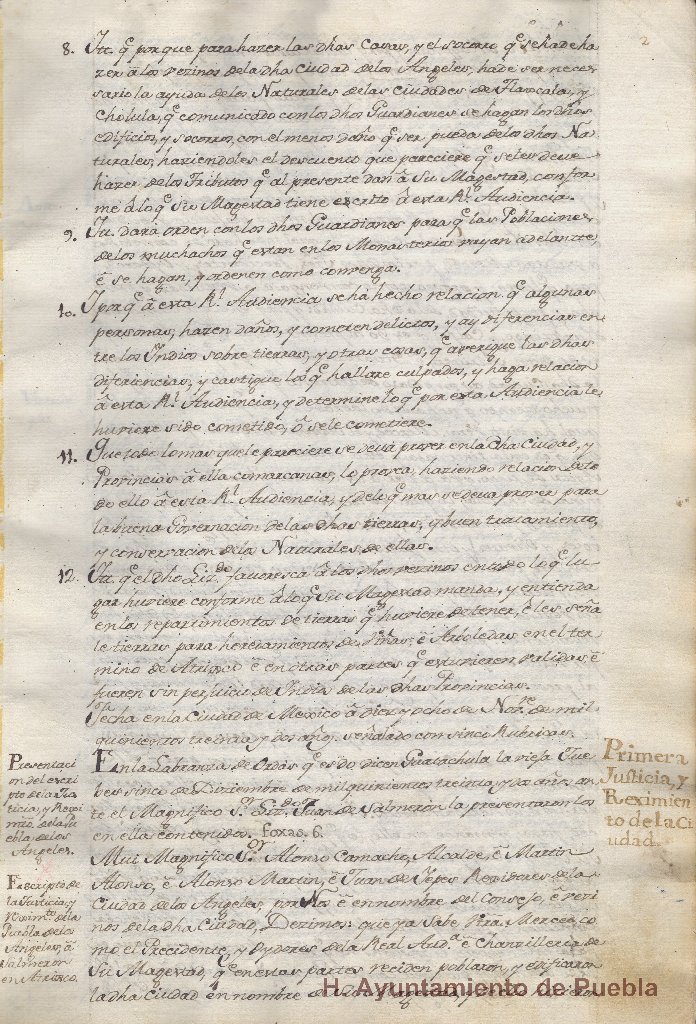 2
8. Itt. q̃ porque para hazer las dhas Casas, y el socorro q̃ se há de ha
zer â los vezinos de la dha Ciudad de los Angeles, há de ser nece-
sario la ayuda de los Naturales de las Ciudades de Tlaxcala, y
Cholula, q̃ comunicado con los dhos Guardianes se hagan los dhos
edificios, y socorros, con el menos daño q̃ ser pueda de los dhos Na-
turales, haziendoles el descuento que pareciere q̃ se les deve
hazer de los Tributos q̃ al presente dan â Su Magestad, confor-
me â lo q̃ Su Magestad tiene escrito â esta Rl. Audiencia.
9. It. dará orden con los dhos Guardianes para q̃ las Poblaciones
de los muchachos q̃ estan en los Monasterios vayan adelante,
ê se hagan, y ordenen como convenga.
10. I porq̃ â esta Rl. Audiencia se há hecho relacion q̃ algunas
personas, hazen daños, y cometen delictos, y ay diferencias en-
tre los Indios sobre tierras, y otras cosas, q̃ averigue las dhas
diferiencias, y castigue los q̃ hallare culpados, y haga relacion
â esta Rl. Audiencia, y determine lo q̃ por esta Audiencia le
huviere sido cometido, ô se le cometiere.
11. Que todo lo mas que le pareciere se devá prover en la Dha Ciudad, y
Provincias â ella comarcanas, lo provea, haziendo relacion de to
do ello â esta Rl. Audiencia, y de lo q̃ mas se deva prover para
la buena Governacion de las dhas tierras, y buen tratamiento,
y conservacion de los Naturales de ellas.
12. Itt. q̃ el dho Lizdo. favoresca â los dhos vezinos en todo lo q̃ lu-
gar huviere conforme â lo q̃ Su Magestad manda, y entienda
en los repartimientos de tierras q̃ huviere de tener, ê les seña
le tierras para heredamientos de Viñas, ê Arboledas en el ter-
mino de Atrisco ê en otras partes q̃ estuvieren validas, ê
fueren sin perjuicio de Indios de las dhas Provincias.
Fecha en la Ciudad de Mexico â diez y ocho de Nobre. de mil
quinientos treinta y dos años, señalado con sinco Rubricas.
En la Labranza de Ordás q̃ es do dicen Guacachula la vieja Jue-
bes sinco de Diziembre de mil quinientos treinta, y dos años, an
te el Magnifico Sor. Lizdo. Juan de Salmerón la presentaron los
en ella contenidos. foxas. 6.
Mui Magnifico Sor. Alonzo Camacho, Alcalde, ê Martin
Alonso, ê Alonso Martin, ê Juan de Yepes Regidores de la
Ciudad de los Angeles, por Nos ê en nombre del Consejo, ê vezi
nos de la dha Ciudad, Dezimos: que ya sabe Vra. Merced, co
mo el Precidente, y Oydores de la Real Auda. ê Chanzilleria de
Su Magestad, q̃ en estas partes reciden poblaron, y edificaron
la dha Ciudad en nombre de
Presentaci
on del escri
pto de la Jus
ticia, y Regi
mto. de la Pu
ebla de los
Angeles.
Escripto de
la Justicia, y
Regimto. de la
Puebla de los
Angeles, â
Salmeron
en Atrisco.
Primera
Justicia, y
Reximien
to de la Ci
udad.
H. Ayuntamiento de Puebla